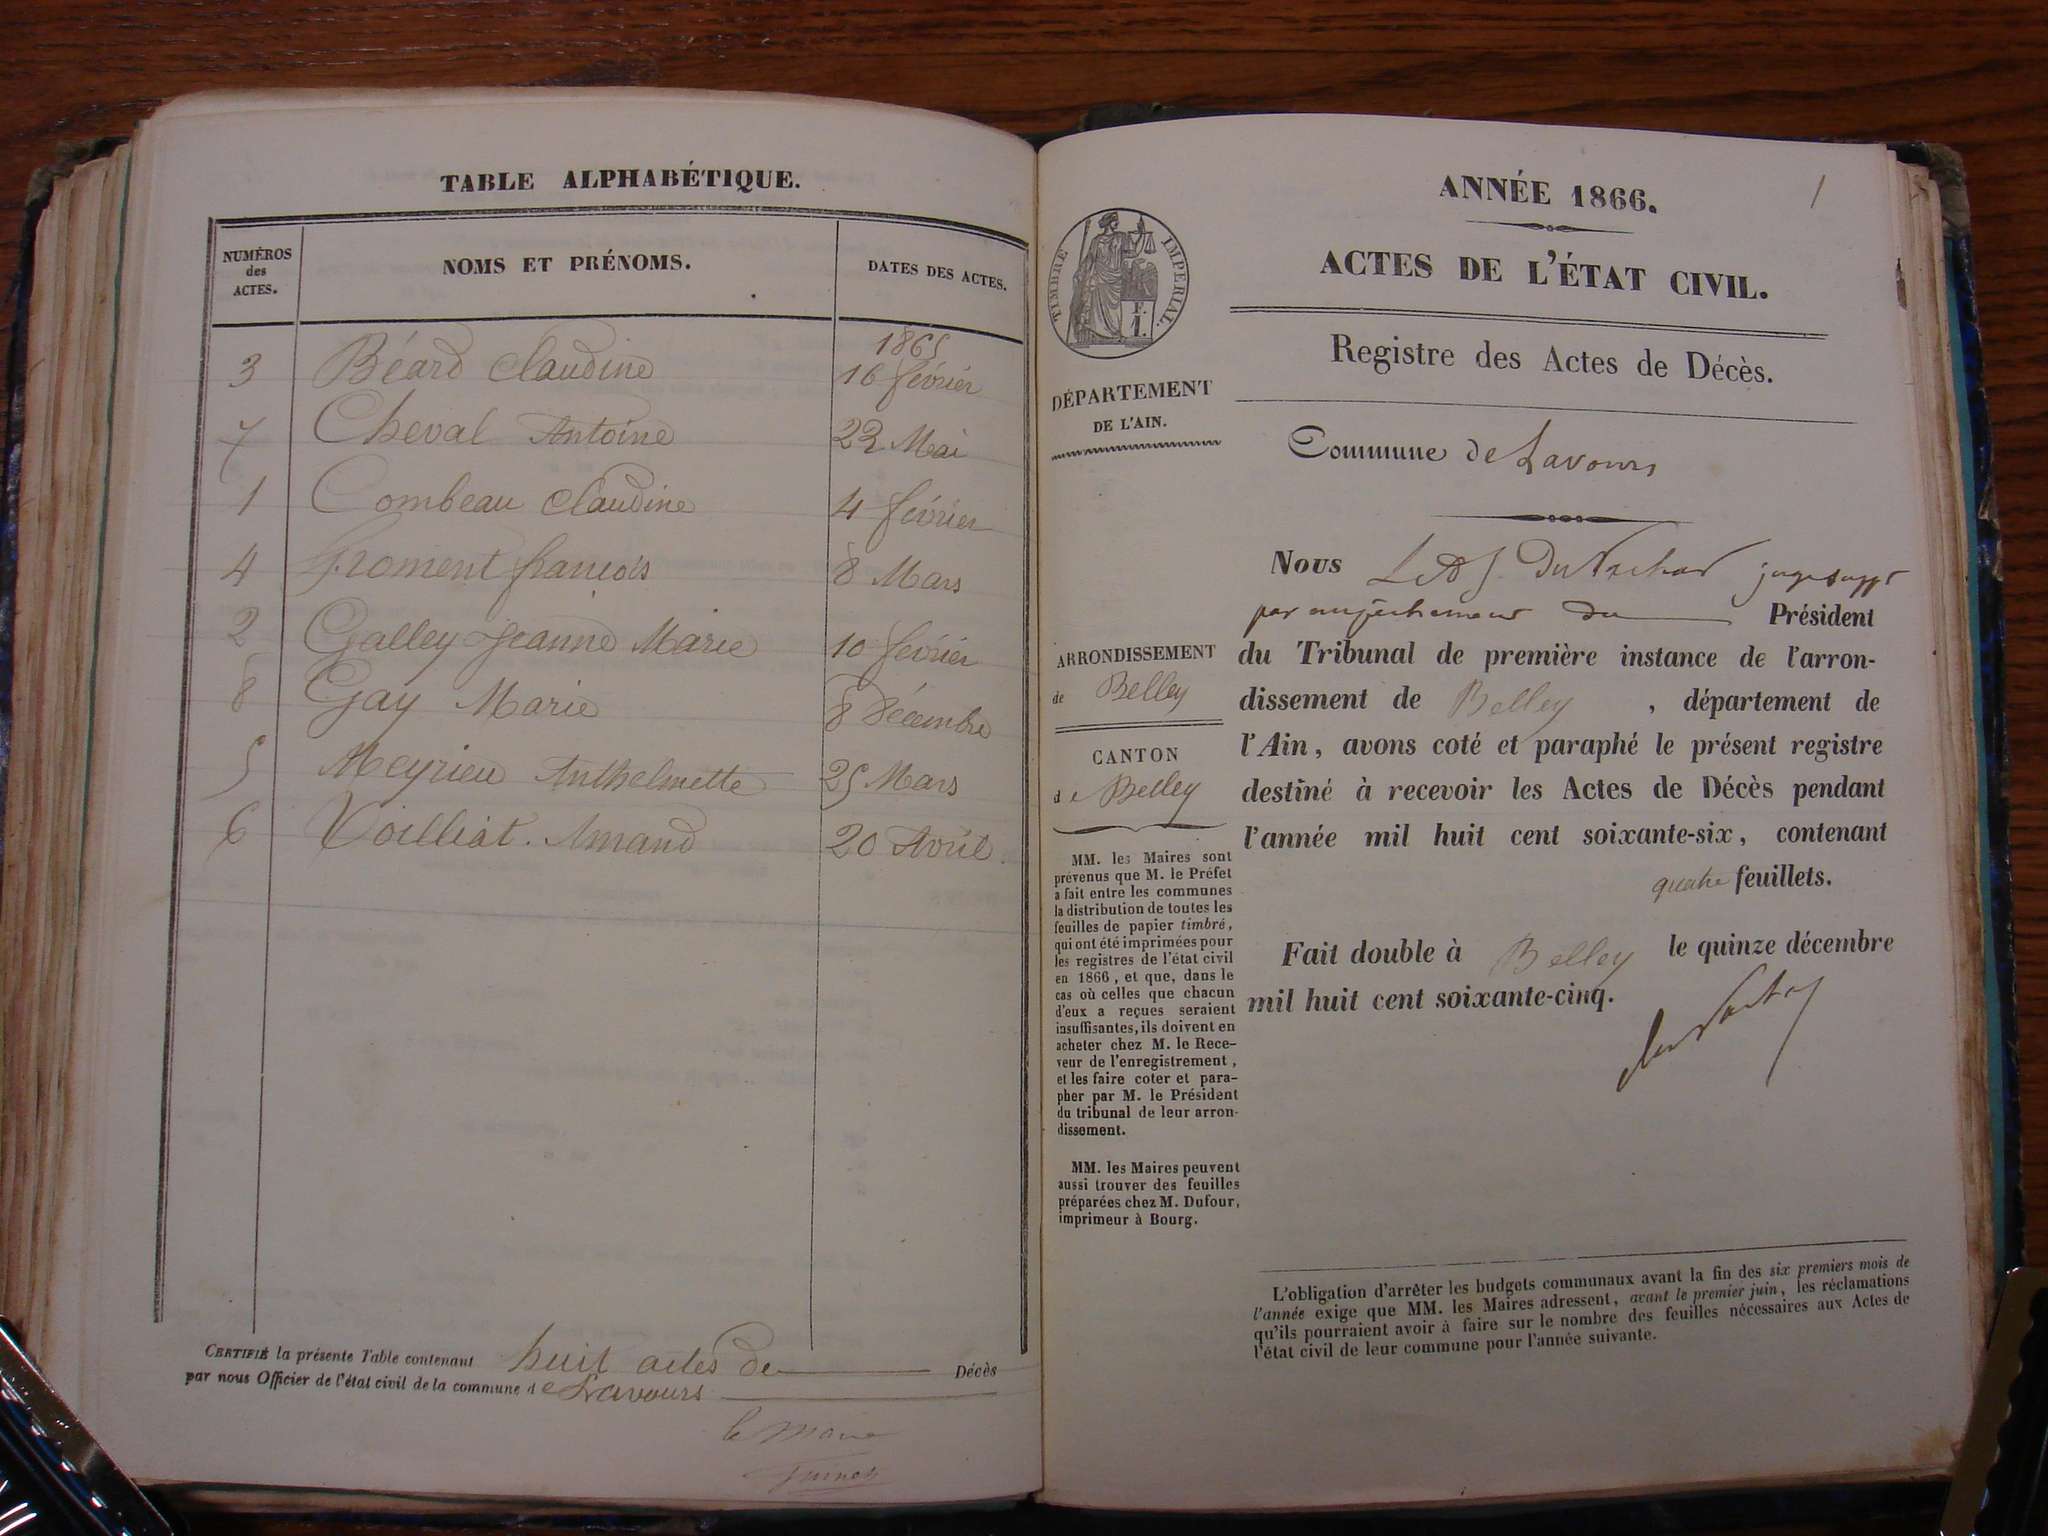 TABLE ALPHABÉTIQUE.
NUMÉROS des ACTES. NOMS ET PRÉNOMS. DATES DES ACTES.
1865
3 Béard Claudine 16 février
7 Cheval Antoine 22 Mai
1 Combeau Claudine 4 février
4 Froment françois 8 Mars
2 Galley Jeanne Marie 10 février
8 Gay Marie 8 Décembre
5 Meyrieu Anthelmette 25 Mars
6 Voilliat Amand 20 Avril
CERTIFIÉ la présente Table contenant huit actes de Décès
par nous Officier de l'état civil de la commune de Lavours
le maire
1
ANNÉE 1866.
ACTES DE L'ÉTAT CIVIL.
TIMBRE IMPÉRIAL.
Registre des Actes de Décès.
DÉPARTEMENT
DE L'AIN.
Commune de Lavours
ARRONDISSEMENT
de Belley
CANTON
de Belley
MM. les Maires sont
prévenus que M. le Préfet
a fait entre les communes
la distribution de toutes les
feuilles de papier timbré,
qui ont été imprimées pour
les registres de l'état civil
en 1866, et que, dans le
cas où celles que chacun
d'eux a reçues seraient
insuffisantes, ils doivent en
acheter chez M. le Rece-
veur de l'enregistrement,
et les faire coter et para-
pher par M. le Président
du tribunal de leur arron-
dissement.
MM. les Maires peuvent
aussi trouver des feuilles
préparées chez M. Dufour,
imprimeur à Bourg.
Nous juge suppt
par empêchement du Président
du Tribunal de première instance de l'arron-
dissement de Belley , département de
l'Ain, avons coté et paraphé le présent registre
destiné à recevoir les Actes de Décès pendant
l'année mil huit cent soixante-six, contenant
quatre feuillets.
Fait double à Belley le quinze décembre
mil huit cent soixante-cinq.
L'obligation d'arrêter les budgets communaux avant la fin des six premiers mois de
l'année exige que MM. les Maires adressent, avant le premier juin, les réclamations
qu'ils pourraient avoir à faire sur le nombre des feuilles nécessaires aux Actes de
l'état civil de leur commune pour l'année suivante.